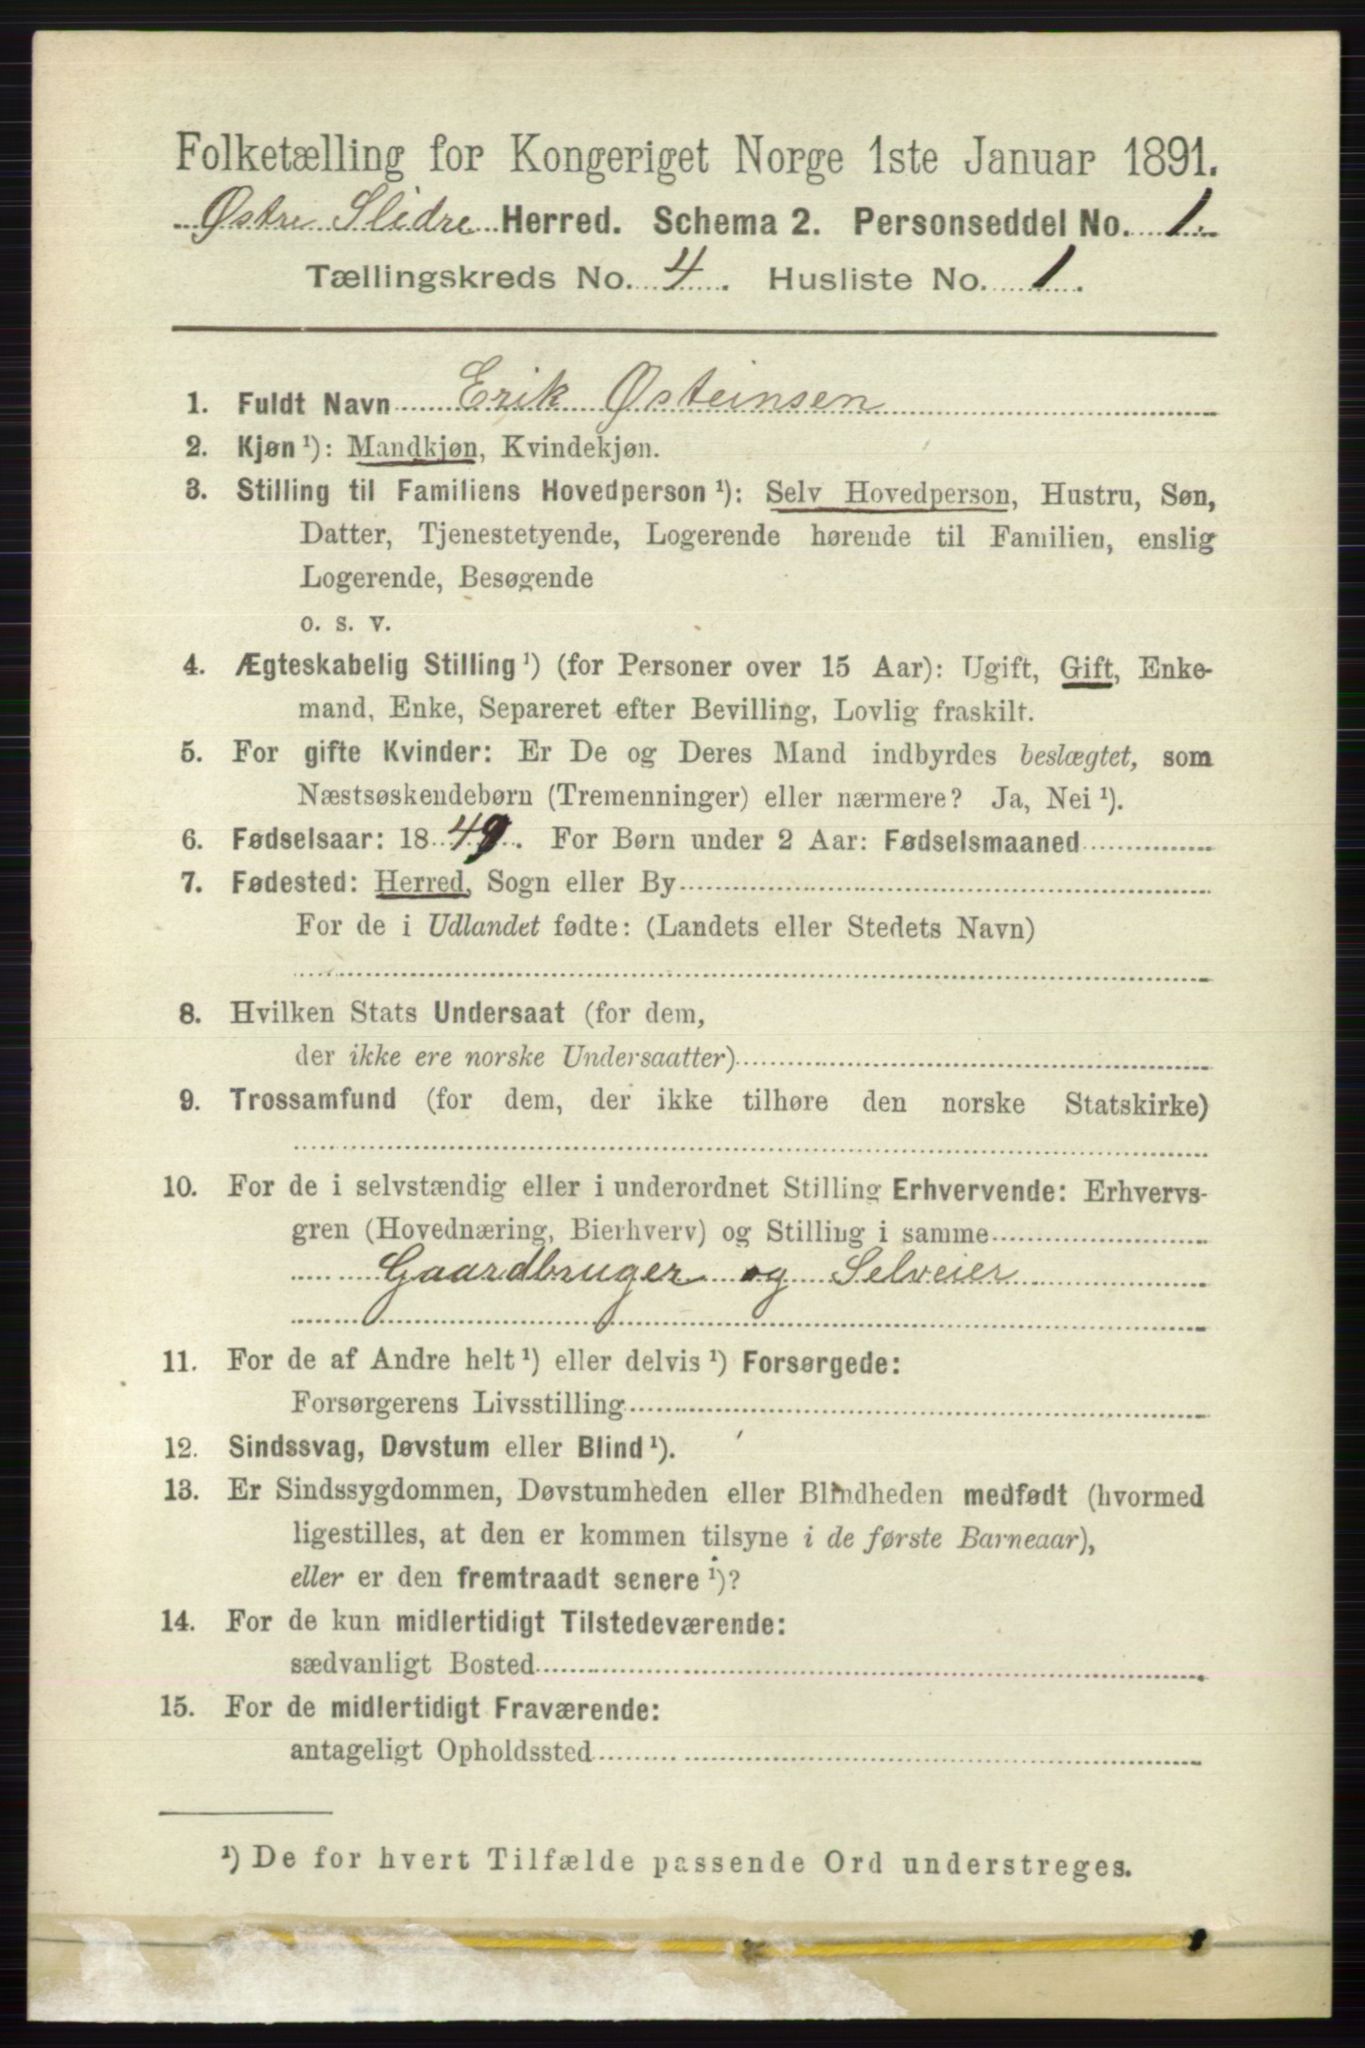 Folketælling for Kongeriget Norge 1ste Januar 1891.
Østre Slidre Herred. Schema 2. Personseddel No. 1.
Tællingskreds No. 4. Husliste No. 1.
1. Fuldt Navn Erik Østeinsen
2. Kjøn¹): Mandkjøn, Kvindekjøn.
3. Stilling til Familiens Hovedperson¹): Selv Hovedperson, Hustru, Søn,
Datter, Tjenestetyende, Logerende hørende til Familien, enslig
Logerende, Besøgende
o. s. v.
4. Ægteskabelig Stilling¹) (for Personer over 15 Aar): Ugift, Gift, Enke-
mand, Enke, Separeret efter Bevilling, Lovlig fraskilt.
5. For gifte Kvinder: Er De og Deres Mand indbyrdes beslægtet, som
Næstsøskendebørn (Tremenninger) eller nærmere? Ja, Nei¹).
6. Fødselsaar: 1849. For Børn under 2 Aar: Fødselsmaaned
7. Fødested: Herred, Sogn eller By
For de i Udlandet fødte: (Landets eller Stedets Navn)
8. Hvilken Stats Undersaat (for dem,
der ikke ere norske Undersaatter)
9. Trossamfund (for dem, der ikke tilhøre den norske Statskirke)
10. For de i selvstændig eller i underordnet Stilling Erhvervende: Erhvervs-
gren (Hovednæring, Bierhverv) og Stilling i samme
Gaardbruger og Selveier
11. For de af Andre helt¹) eller delvis¹) Forsørgede:
Forsørgerens Livsstilling
12. Sindssvag, Døvstum eller Blind¹).
13. Er Sindssygdommen, Døvstumheden eller Blindheden medfødt (hvormed
ligestilles, at den er kommen tilsyne i de første Barneaar),
eller er den fremtraadt senere¹)?
14. For de kun midlertidigt Tilstedeværende:
sædvanligt Bosted
15. For de midlertidigt Fraværende:
antageligt Opholdssted
¹) De for hvert Tilfælde passende Ord understreges.